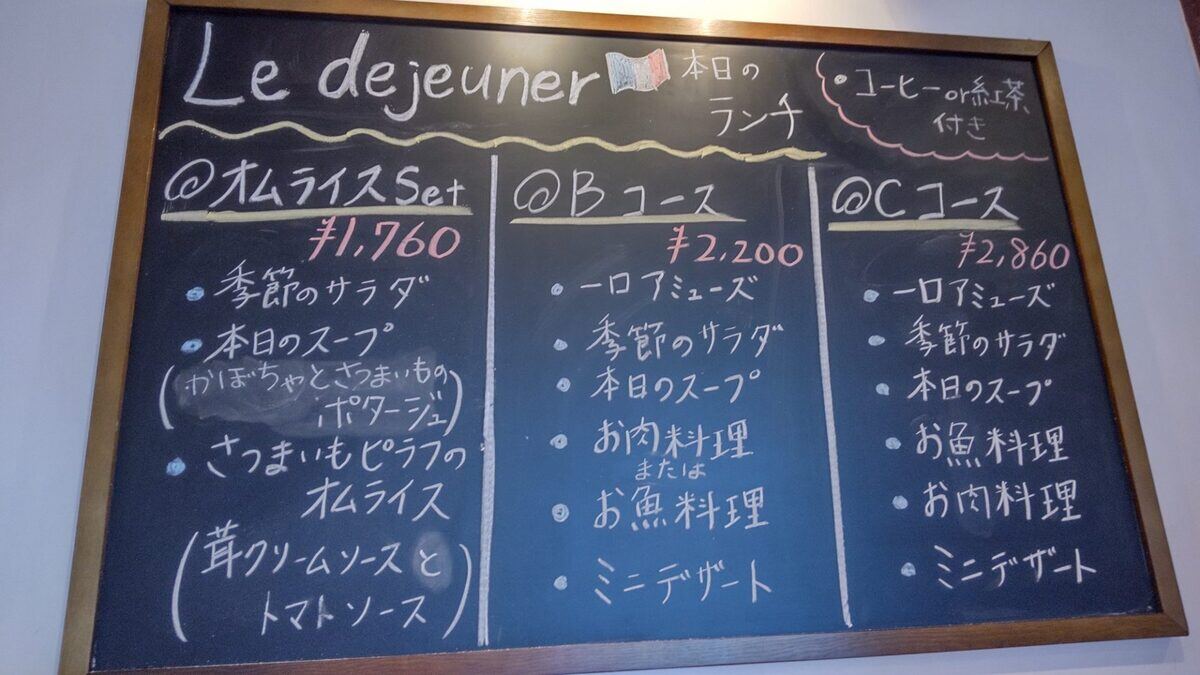 Le dejeuner
本日の
ランチ
コーヒーor紅茶
付き
@オムライスSet
¥1,760
・季節のサラダ
・本日のスープ
(かぼちゃとさつまいもの
ポタージュ)
・さつまいもピラフの
オムライス
(茸クリームソースと
トマトソース)
@Bコース
¥2,200
・一口アミューズ
・季節のサラダ
・本日のスープ
・お肉料理
または
・お魚料理
・ミニデザート
@Cコース
¥2,860
・一口アミューズ
・季節のサラダ
・本日のスープ
・お魚料理
・お肉料理
・ミニデザート